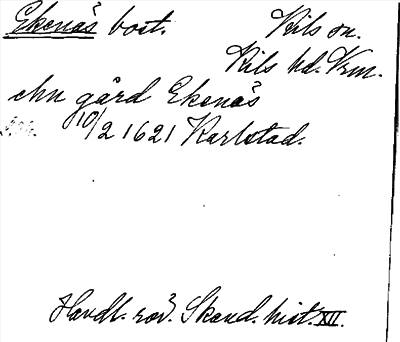 Ekenäs bost. Kils sn.
Kils hd. Vrm.
chn gård Ekenäs
10/2 1621 Karlstad.
Handl. rör. Skand. hist. XII.